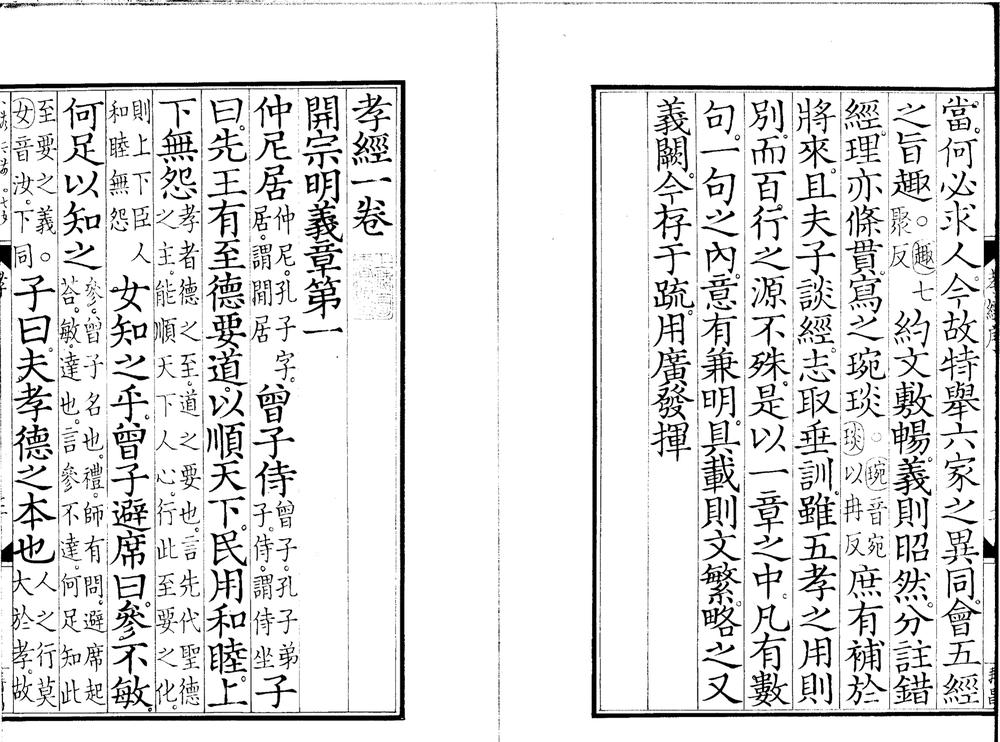 當。何必求人。今故特舉六家之異同。會五經
之旨趣。○趣七聚反約文敷暢。義則昭然。分註錯
經。理亦條貫。寫之琬琰。○琬音宛琰以冉反庶有補於
將來。且夫子談經。志取垂訓。雖五孝之用則
別。而百行之源不殊。是以一章之中。凡有數
句。一句之內。意有兼明。具載則文繁。略之又
義闕。今存于疏。用廣發揮
孝經一卷
開宗明義章第一
仲尼居仲尼。孔子字。居。謂閒居曾子侍曾子。孔子弟子。侍。謂侍坐子
曰。先王有至德要道。以順天下。民用和睦。上
下無怨孝者德之至。道之要也。言先代聖德之主。能順天下人心。行此至要之化。
則上下臣人和睦無怨女知之乎。曾子避席曰。參不敏。
何足以知之參。曾子名也。禮。師有問。避席起荅。敏。達也。言參不達。何足知此
至要之義○女音汝。下同子曰。夫孝德之本也人之行莫大於孝。故